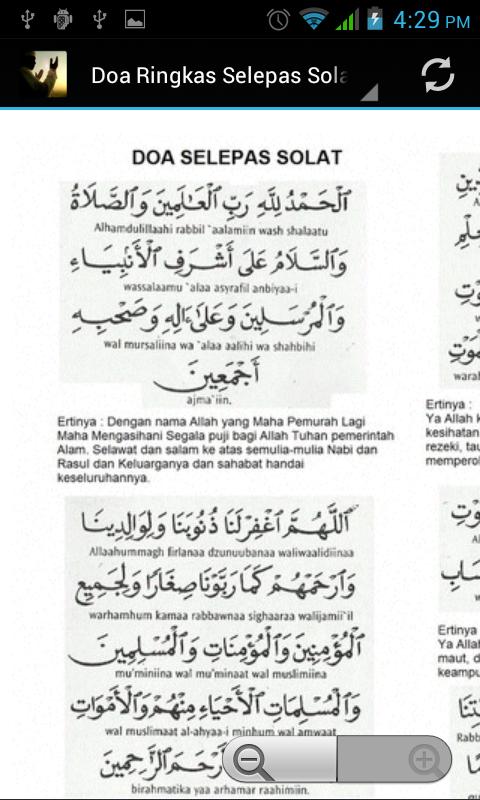 4:29 PM
Doa Ringkas Selepas Sola
DOA SELEPAS SOLAT
اَلْحَمْدُ لِلّٰهِ رَبِّ الْعَالَمِينَ وَالصَّلَاةُ
Alhamdulillaahi rabbil `aalamiin wash shalaatu
وَالسَّلَامُ عَلَى أَشْرَفِ الْأَنْبِيَاءِ
wassalaamu `alaa asyrafil anbiyaa-i
وَالْمُرْسَلِينَ وَعَلَى اٰلِهِ وَصَحْبِهِ
wal mursaliina wa `alaa aalihi wa shahbihi
أَجْمَعِينَ
ajma`iin.
Ertinya : Dengan nama Allah yang Maha Pemurah Lagi
Maha Mengasihani Segala puji bagi Allah Tuhan pemerintah
Alam. Selawat dan salam ke atas semulia-mulia Nabi dan
Rasul dan Keluarganya dan sahabat handai
keseluruhannya.
اَللّٰهُمَّ اغْفِرْلَنَا ذُنُوبَنَا وَلِوَالِدِينَا
Allaahummagh firlanaa dzunuubanaa waliwaalidiinaa
وَارْحَمْهُمْ كَمَا رَبَّوْنَا صِغَارًا وَلِجَمِيْعِ
warhamhum kamaa rabbawnaa sighaaraa walijamii`il
الْمُؤْمِنِينَ وَالْمُؤْمِنَاتِ وَالْمُسْلِمِينَ
mu'miniina wal mu'minaat wal muslimiina
وَالْمُسْلِمَاتِ الْأَحْيَاءِ مِنْهُمْ وَالْأَمْوَاتِ
wal muslimaat al-ahyaa-i minhum wal amwaat
أَرْحَمَ الرَّاحِمِينَ
birahmatika yaa arhamar raahimiin.
Ertinya :
Ya Allah k
kesihatan
rezeki, tau
memperol
Ertinya
Ya Allah
maut, d
keampu
Rabb